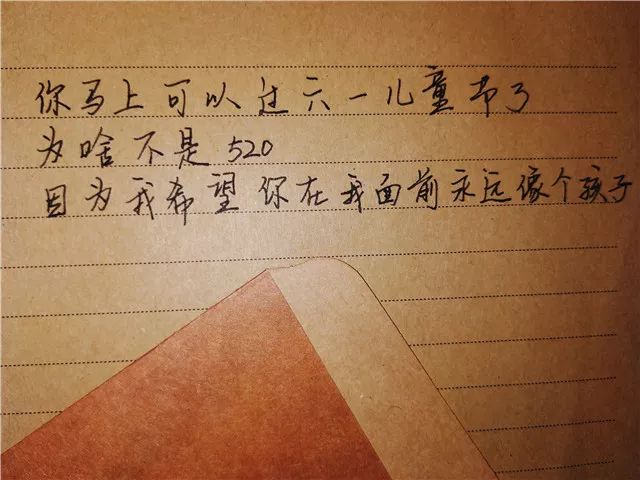 你马上可以过六一儿童节了
为啥不是520
因为我希望你在我面前永远像个孩子